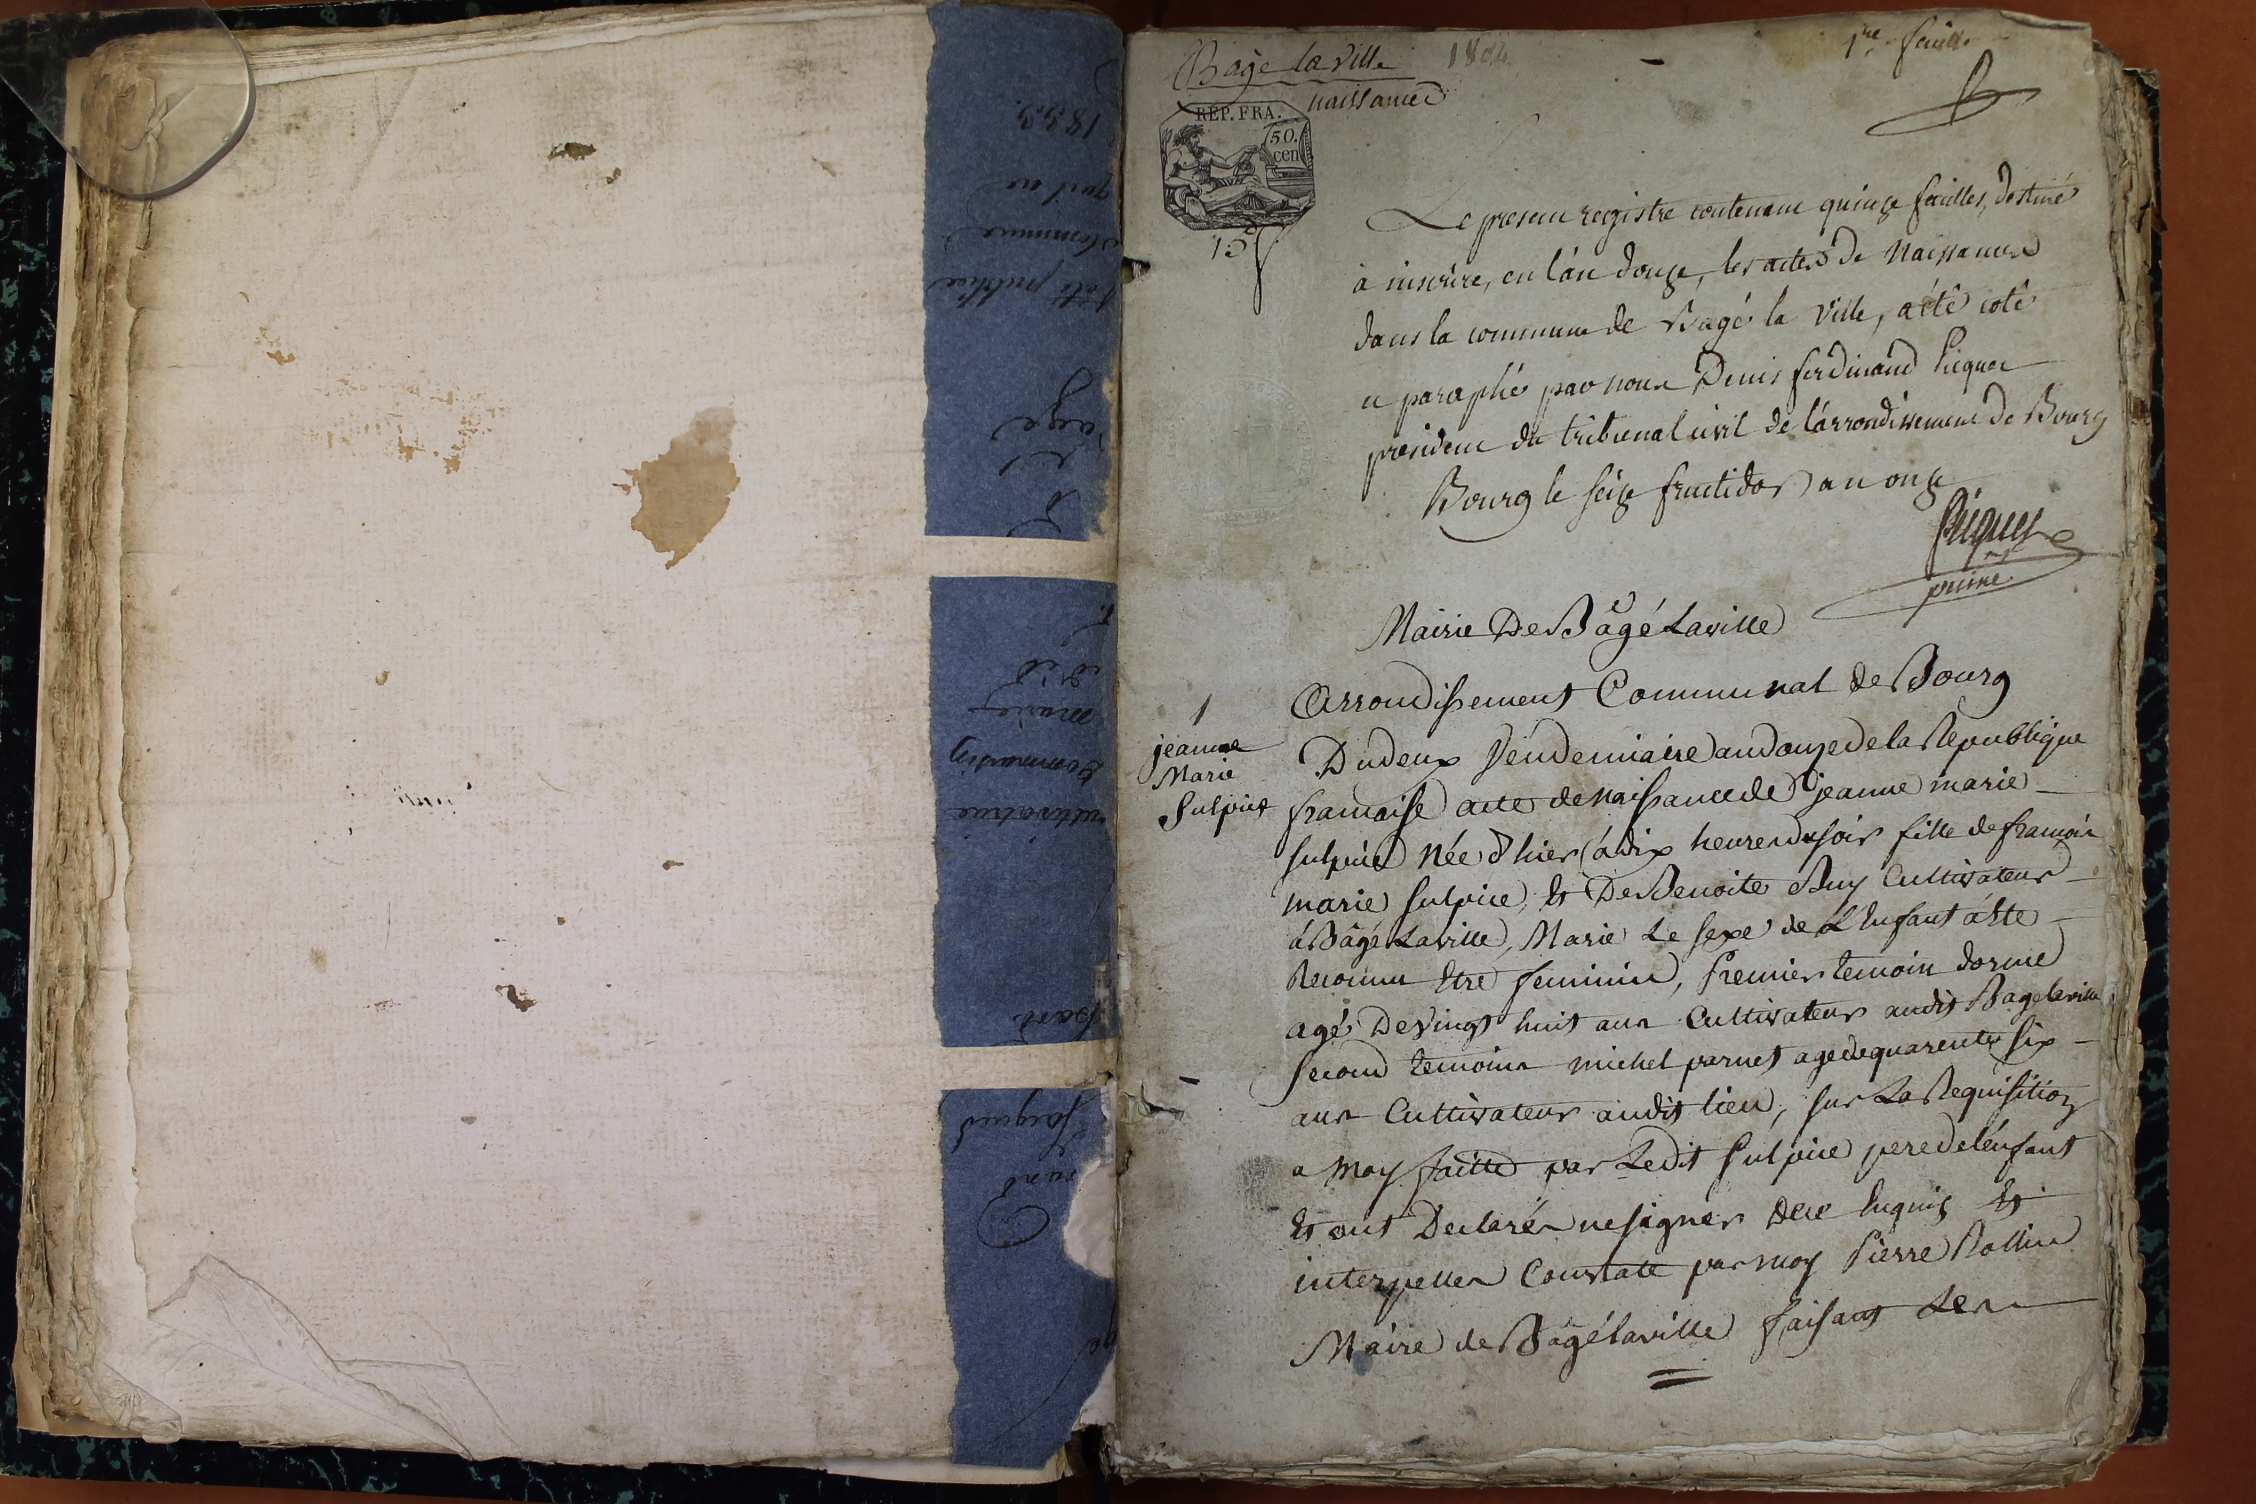 Bagé la Ville
naissances
1re feuille
REP. FRA.
50.
cen
15
Le present registre contenant quinze feuilles, destiné
à inscrire, en l'an douze, les actes de Naissances
dans la commune de Bagé la Ville, a été coté
et paraphé par nous Denis ferdinand Piquet
president du tribunal civil de l'arrondissement de Bourg
Bourg le seize fructidor an onze
Piquet
Mairie De Bâgé Laville
Arrondissement Communal de Bourg
1
jeanne
Marie
Sulpice
Du deux Vendemiaire an douze de la Republique
francaise acte de naissance de jeanne marie
sulpice Née d'hier à dix heures du soir fille de francois
marie sulpice, Et De Benoite Buy Cultivateurs
à Bâgé Laville, Marié Le sexe de L'Enfant à Ete
Reconnu Etre feminin, Premier temoin dorme
agé De Vingt huit ans Cultivateur audit Bagé laville
second temoins michel parnet agé de quarente six
ans Cultivateur audit lieu, sur La Requisition
a Moy faitte par Ledit Sulpice pere de lenfant
Et ont Declarés ne signer De ce Enquis Et
interpellés Constaté par moy Pierre Rollin
Maire de Bâgé laville faisant Les
1833.
qu'il ne
commune
été publié
age
Jaques